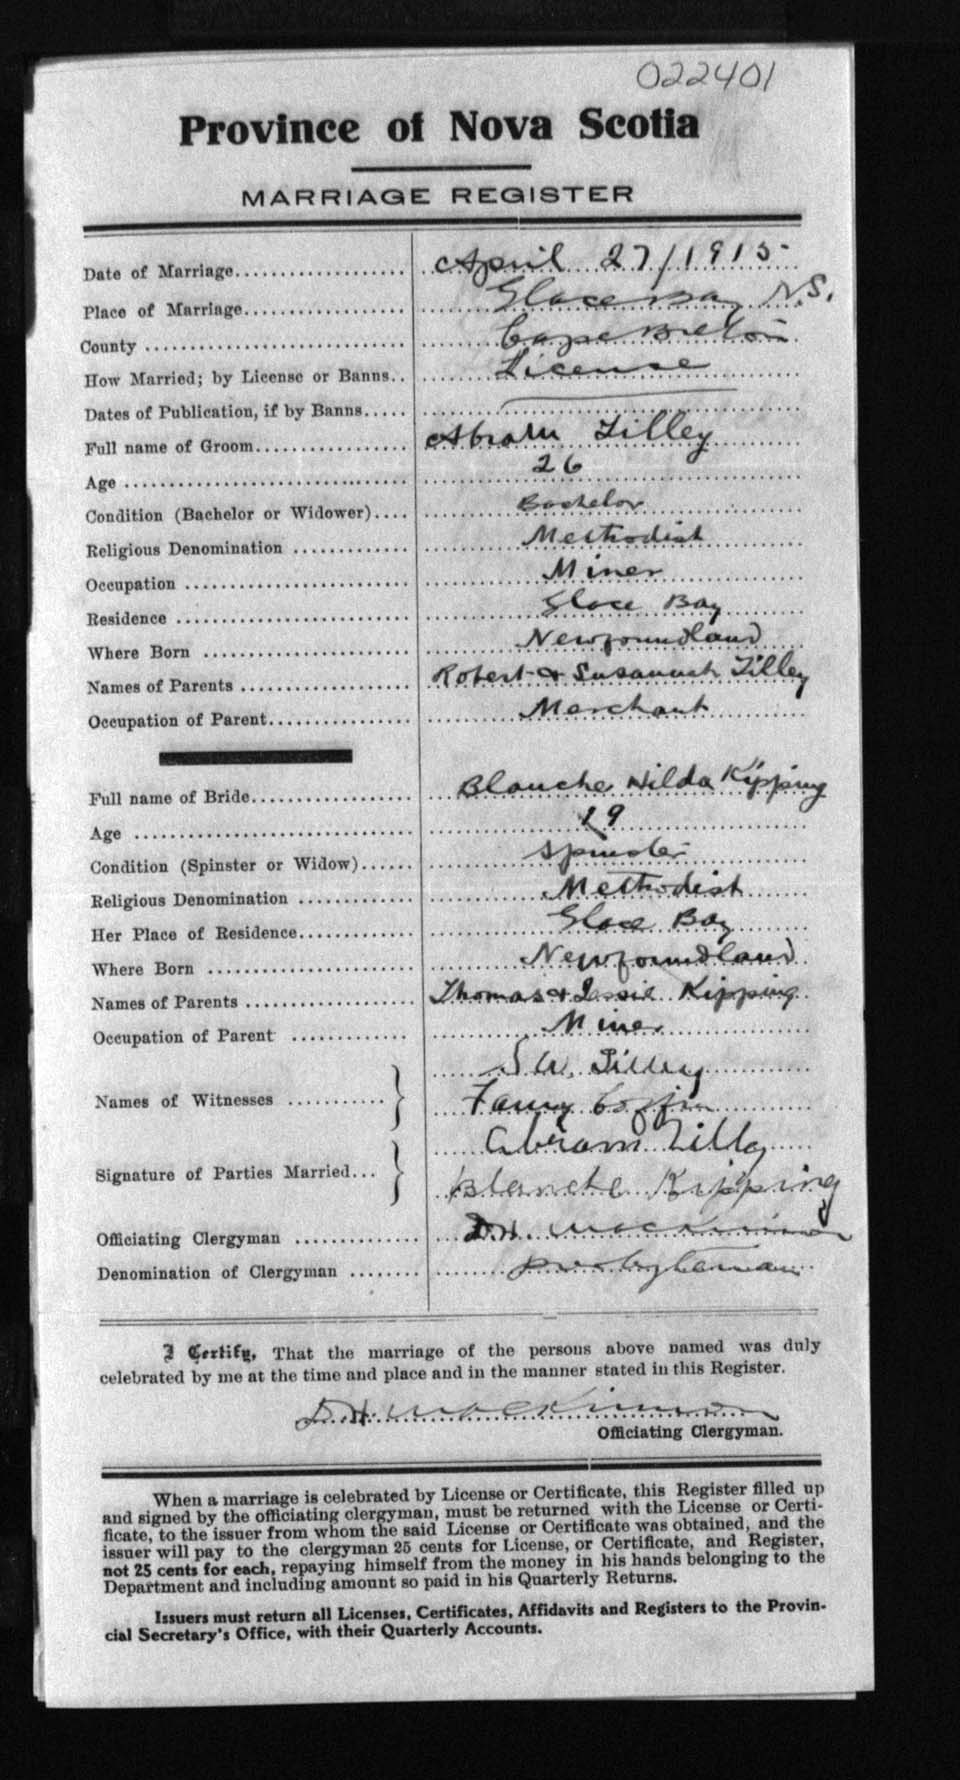 022401
Province of Nova Scotia
MARRIAGE REGISTER
Date of Marriage.................. April 27/1915
Place of Marriage................. Glace Bay N.S.
County ........................... Cape Breton
How Married; by License or Banns.. License
Dates of Publication, if by Banns.....
Full name of Groom................ Abram Tilley
Age .............................. 26
Condition (Bachelor or Widower).... Bachelor
Religious Denomination ............. Methodist
Occupation ......................... Miner
Residence .......................... Glace Bay
Where Born ......................... Newfoundland
Names of Parents ................... Robert & Susannah Tilley
Occupation of Parent................ Merchant
Full name of Bride.................. Blanche Hilda Kipping
Age ................................ 19
Condition (Spinster or Widow)...... Spinster
Religious Denomination ............. Methodist
Her Place of Residence.............. Glace Bay
Where Born ......................... Newfoundland
Names of Parents ................... Thomas & Jessie Kipping
Occupation of Parent ............. Miner
S W. Tilley
Names of Witnesses ...........
Fanny Coffin
Abram Tilly
Signature of Parties Married...
Blanche Kipping
Officiating Clergyman .............. D.H. MacKinnon
Denomination of Clergyman ........ Presbyterian
I Certify, That the marriage of the persons above named was duly
celebrated by me at the time and place and in the manner stated in this Register.
D.H. MacKinnon
Officiating Clergyman.
When a marriage is celebrated by License or Certificate, this Register filled up
and signed by the officiating clergyman, must be returned with the License or Certi-
ficate, to the issuer from whom the said License or Certificate was obtained, and the
issuer will pay to the clergyman 25 cents for License, or Certificate, and Register,
not 25 cents for each, repaying himself from the money in his hands belonging to the
Department and including amount so paid in his Quarterly Returns.
Issuers must return all Licenses, Certificates, Affidavits and Registers to the Provin-
cial Secretary's Office, with their Quarterly Accounts.